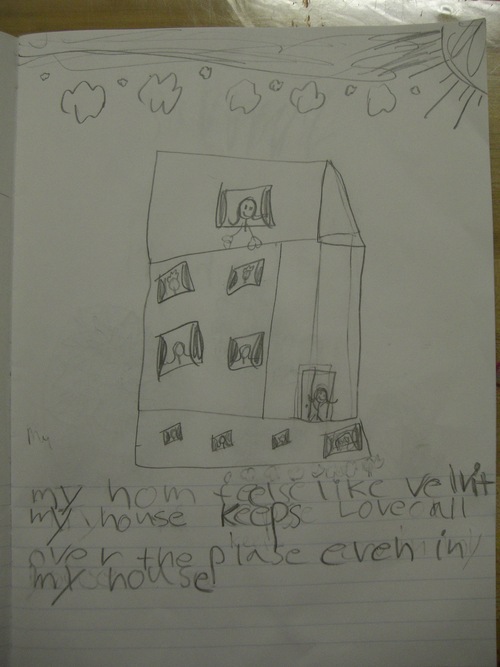 My
my hom feelse like velvit
my house keeps Lovecall
over the plase even in
my house